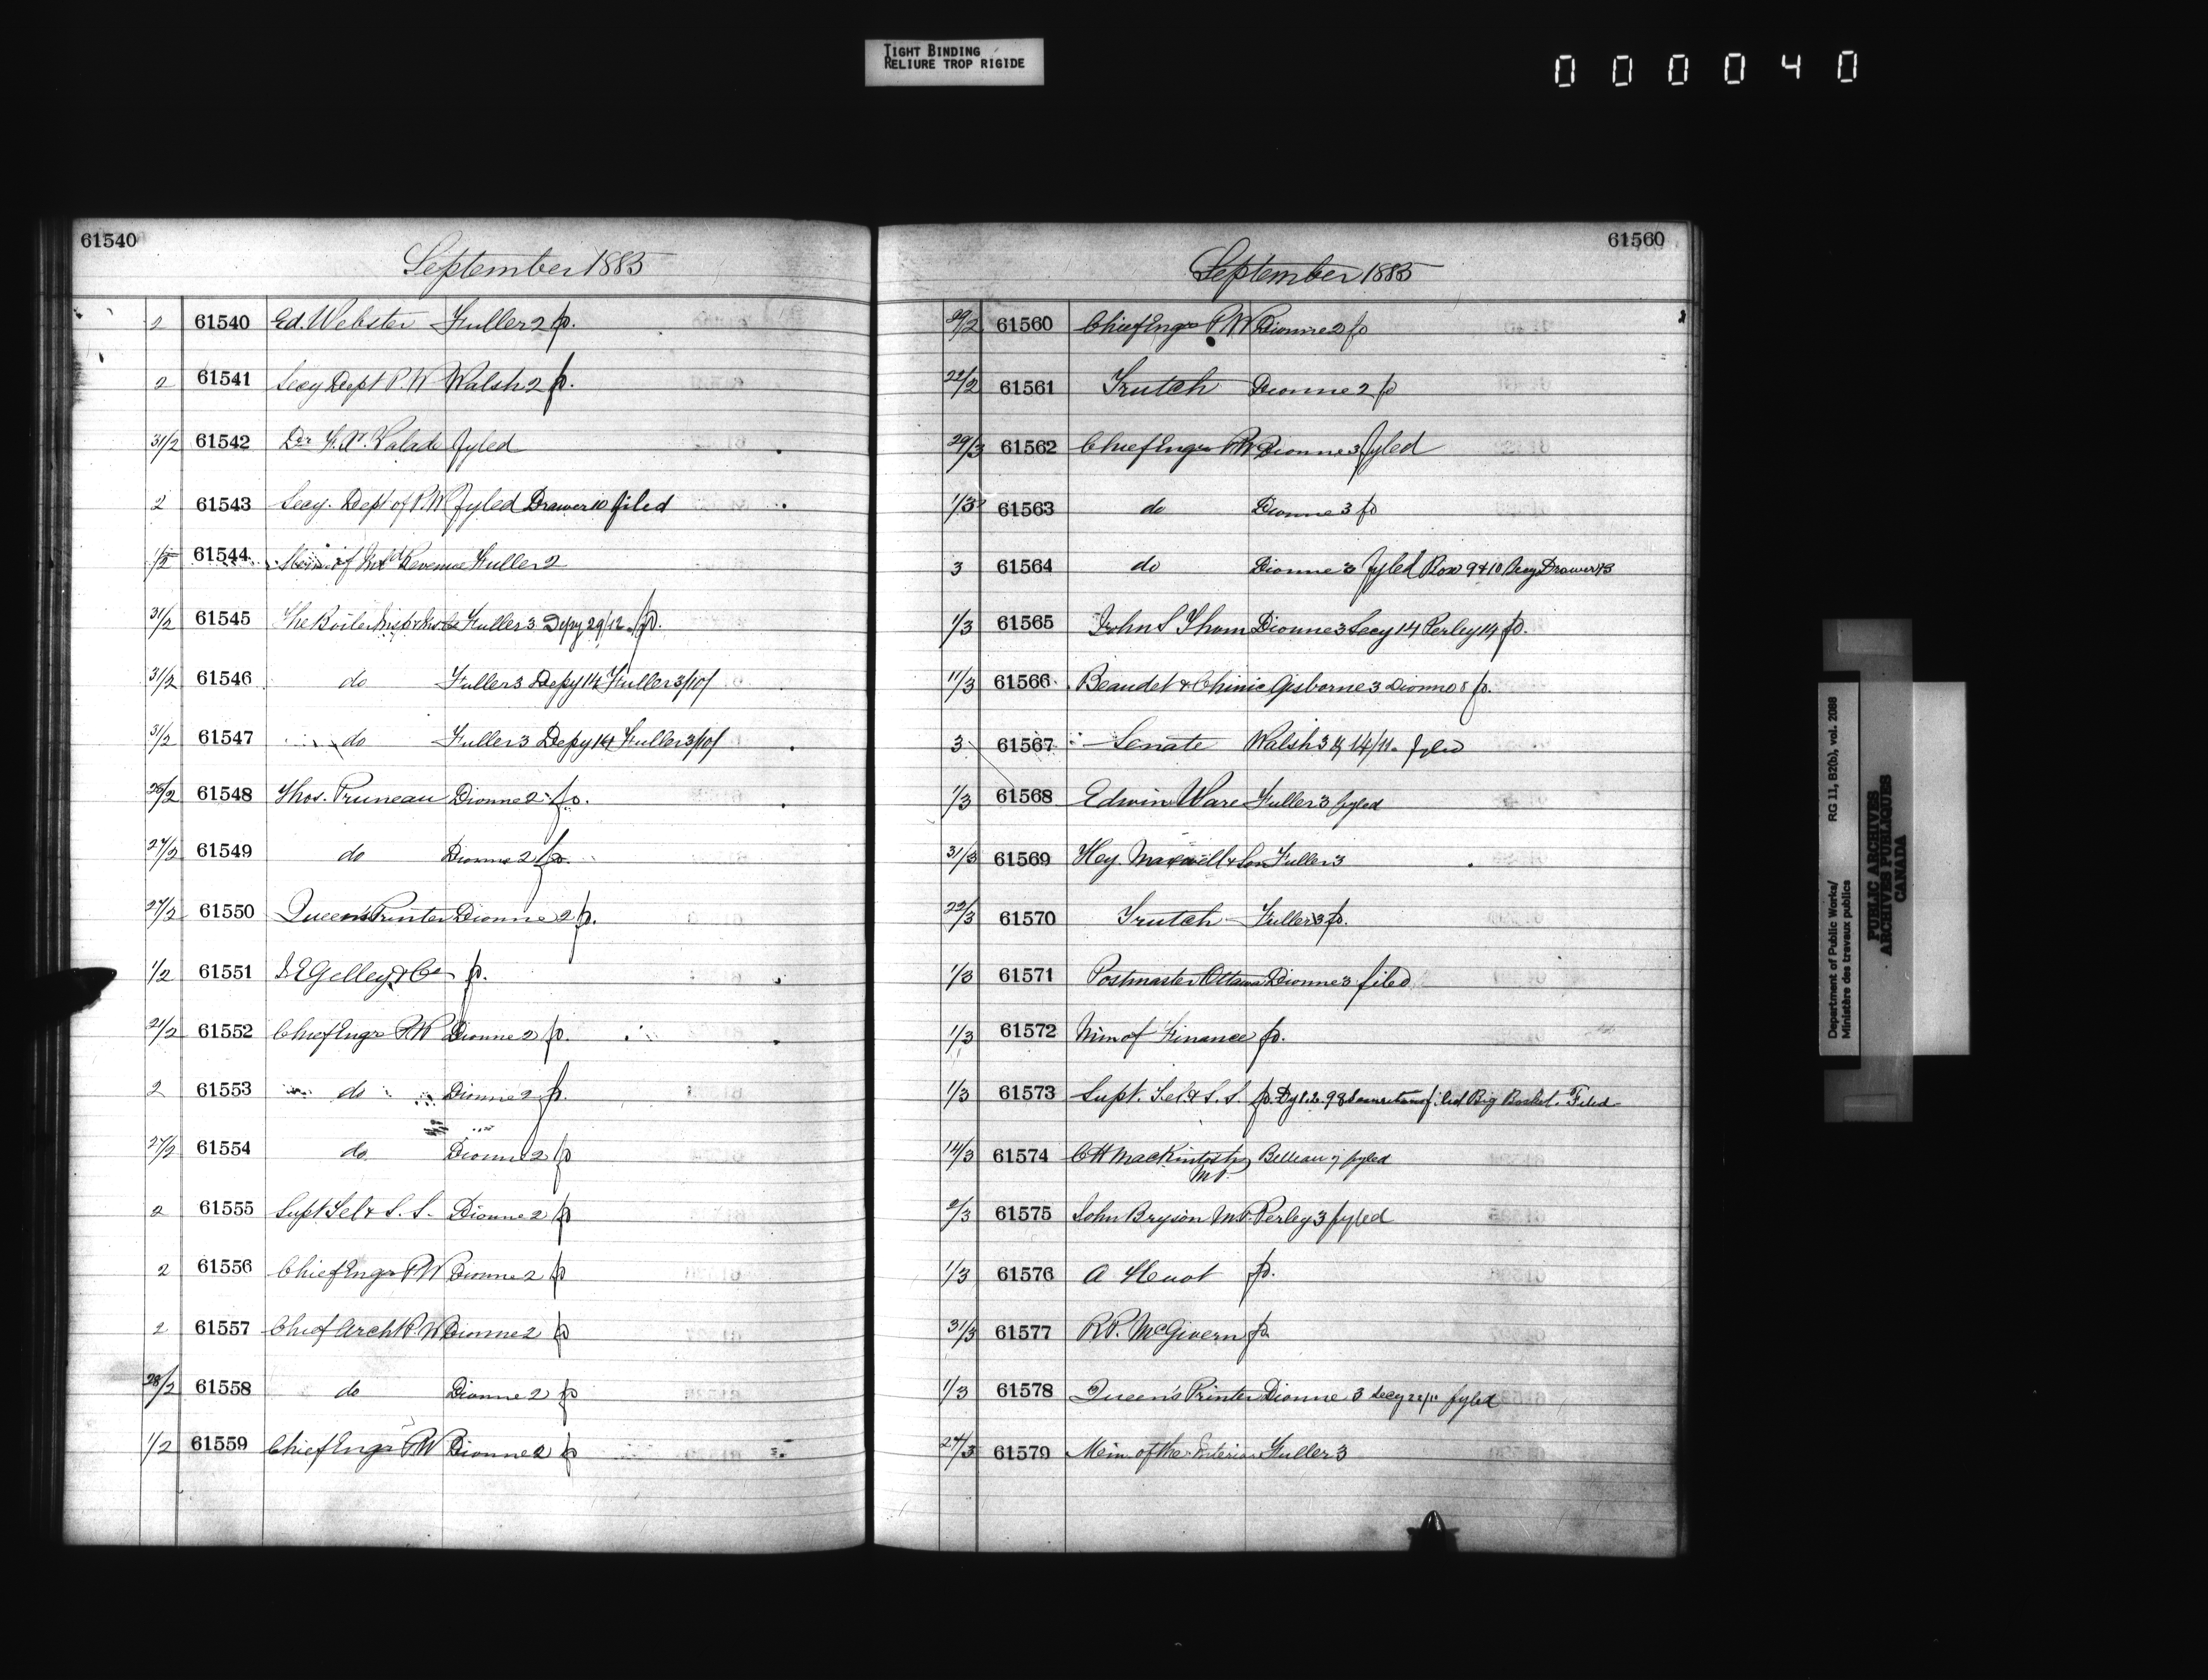 TIGHT BINDING
RELIURE TROP RIGIDE
000040
61540
September 1885
2 61540 Ed. Webster Fuller 2 fo.
2 61541 Secy Dept P.W Walsh 2 fo.
31/2 61542 Valade fyled
2 61543 Secy. Dept of P.W fyled Drawer 10 filed
1/2 61544 of Inld Revenue Fuller 2
31/2 61545 The Boiler Fuller 3 Depy 29/12 fo.
31/2 61546 do Fuller 3 Depy 14 Fuller 3/10/
31/2 61547 do Fuller 3 Depy 14 Fuller 3/10/
26/2 61548 Thos. Pruneau Dionne 2 fo.
27/2 61549 do Dionne 2 fo.
27/2 61550 Queen's Printer Dionne 2 fo.
1/2 61551 Gelley & Co fo.
21/2 61552 Chief Engr P.W Dionne 2 fo.
2 61553 do Dionne 2 fo.
27/2 61554 do Dionne 2 fo
2 61555 Supt. Tel & S. S. Dionne 2 fo
2 61556 Chief Engr P.W Dionne 2 fo
2 61557 Chief Archt P.W Dionne 2 fo
28/2 61558 do Dionne 2 fo
1/2 61559 Chief Engr P.W Dionne 2 fo
61560
September 1885
29/2 61560 Chief Engr P.W Dionne 2 fo
22/2 61561 Trutch Dionne 2 fo
29/3 61562 Chief Engr P.W Dionne 3 fyled
1/3 61563 do Dionne 3 fo
3 61564 do Dionne 3 fyled Box 9 & 10 Secy Drawer
1/3 61565 John S Thom Dionne 3 Secy 14 Perley 14 fo.
11/3 61566 Beaudet & Chinic Gisborne 3 Dionne 8 fo.
3 61567 Senate Walsh 3 14/11 fyled
1/3 61568 Edwin Ware Fuller 3 fyled
31/3 61569 Hey. Maxwell & Son Fuller 3
22/3 61570 Trutch Fuller 3 fo.
1/3 61571 Postmaster Ottawa Dionne 3 filed
1/3 61572 Min of Finance fo.
1/3 61573 Supt. Tel & S. S fo. filed Big Basket. Filed
14/3 61574 CH Mackintosh Belleau fyled
M.P.
2/3 61575 John Bryson M.P. Perley 3 fyled
1/3 61576 A fo.
31/3 61577 R.P. McGivern fo.
1/3 61578 Queen's Printer Dionne 3 Secy fyled
27/3 61579 Min. of the Interior Fuller 3
Department of Public Works/
Ministère des travaux publics
RG 11, B2(b), vol. 2088
PUBLIC ARCHIVES
ARCHIVES PUBLIQUES
CANADA